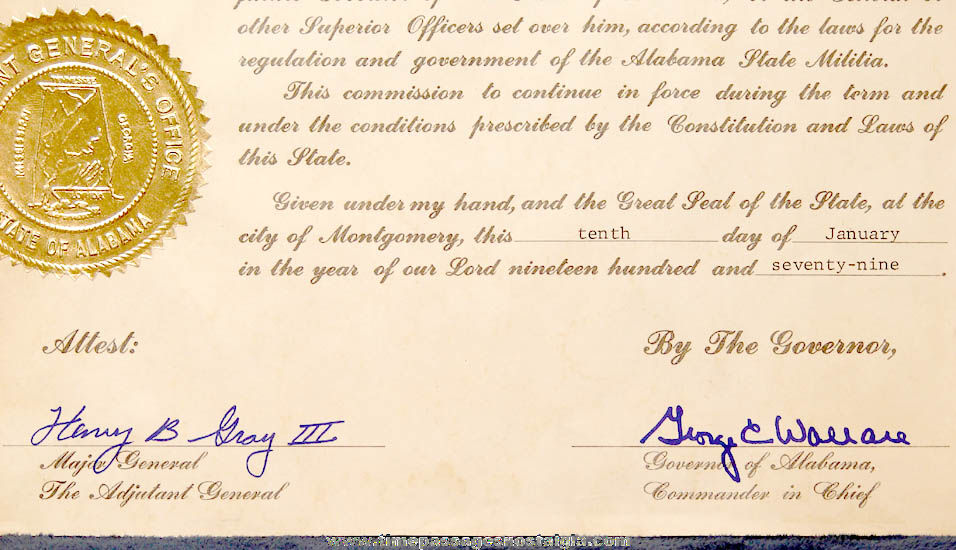 other Superior Officers set over him, according to the laws for the
regulation and government of the Alabama State Militia.
This commission to continue in force during the term and
under the conditions prescribed by the Constitution and Laws of
this State.
Given under my hand, and the Great Seal of the State, at the
city of Montgomery, this tenth day of January
in the year of our Lord nineteen hundred and seventy-nine.
NT GENERAL'S OFFICE
MISSISSIPPI
GEORGIA
STATE OF ALABAMA
Attest:
By The Governor,
Henry B Gray III
George C Wallace
Major General
Governor of Alabama,
The Adjutant General
Commander in Chief
www.timepassagesnostalgia.com